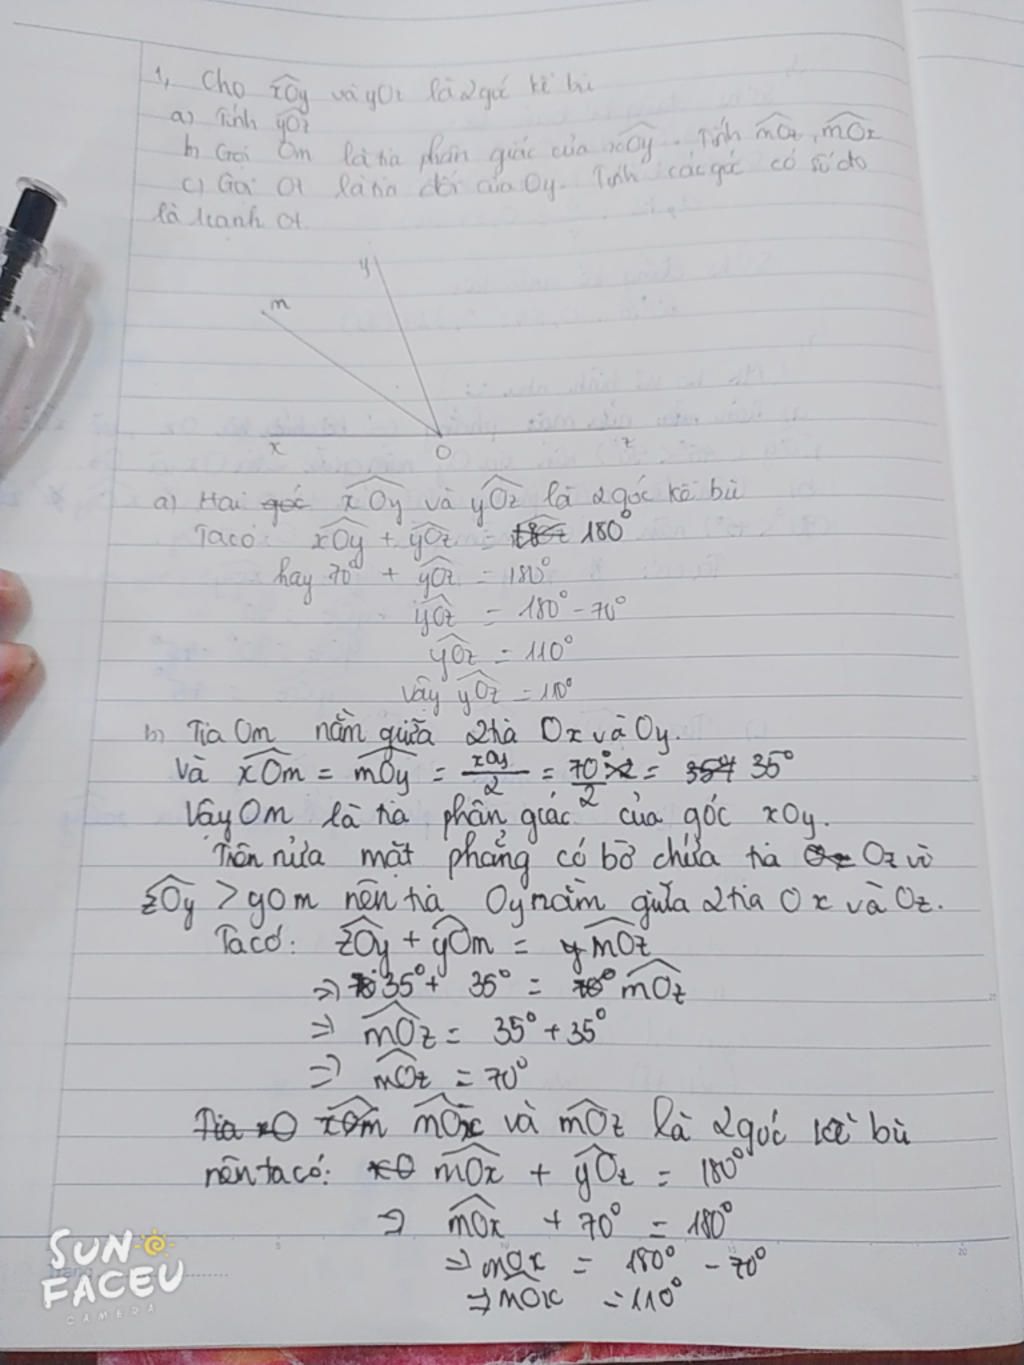 1, Cho xOy và yOz là 2 góc kề bù
a) Tính yOz
b) Gọi Om là tia phân giác của xOy. Tính mOz, mOx
c) Gọi Ot là tia đối của Oy. Tính các góc có số đo
là cạnh Ot.
y
m
x
O
z
a) Hai góc xOy và yOz là 2 góc kề bù
Ta có: xOy + yOz = 180°
hay 70° + yOz = 180°
yOz = 180° - 70°
yOz = 110°
Vậy yOz = 110°
b) Tia Om nằm giữa 2 tia Ox và Oy.
Và xOm = mOy = xOy/2 = 70°/2 = 35°
Vậy Om là tia phân giác của góc xOy.
Trên nửa mặt phẳng có bờ chứa tia Oz vì
zOy > yOm nên tia Oy nằm giữa 2 tia Ox và Oz.
Ta có: zOy + yOm = mOz
=> 35° + 35° = mOz
=> mOz = 35° + 35°
=> mOz = 70°
mOx và mOz là 2 góc kề bù
nên ta có: mOx + yOz = 180°
=> mOx + 70° = 180°
=> mOx = 180° - 70°
=> mOx = 110°
SUN
FACEU
CAMERA